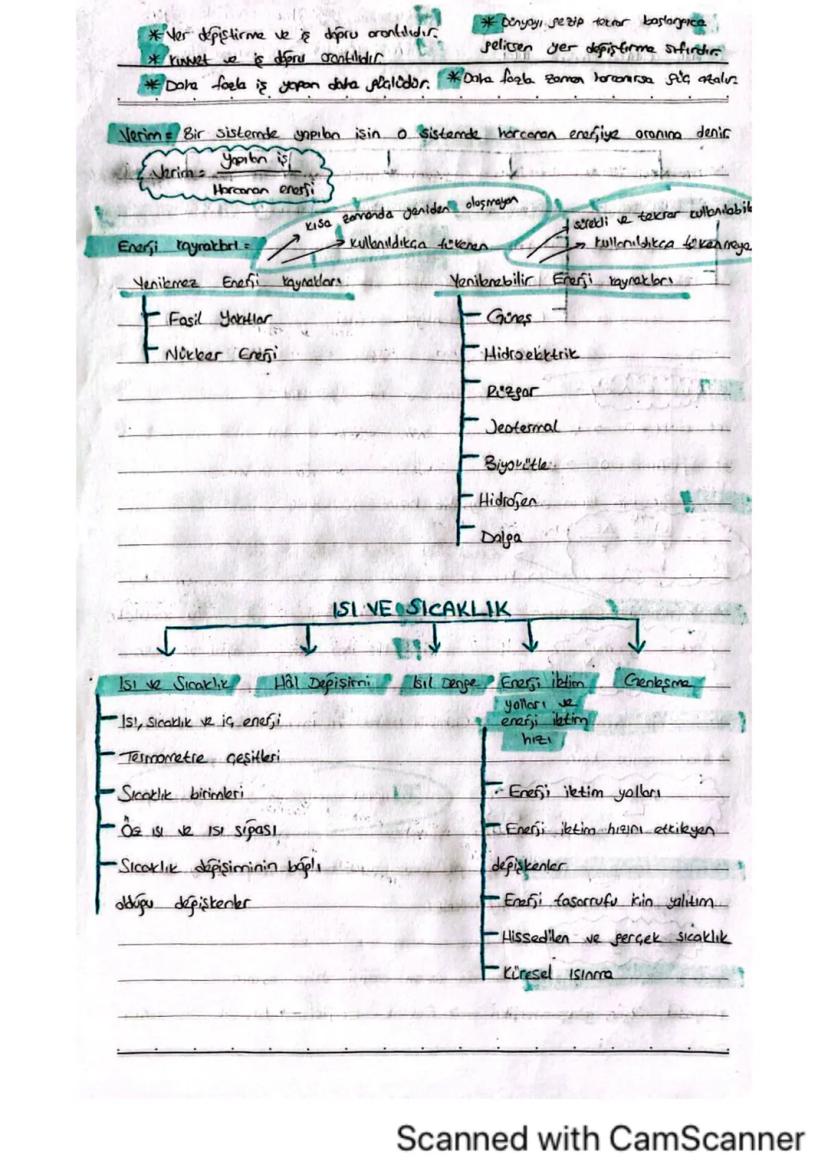 * Yer değiştirme ve iş doğru orantılıdır.
* Kuvvet ve iş doğru orantılıdır.
* Dünyayı gezip tekrar başlangıca
gelirsen yer değiştirme sıfırdır.
* Daha fazla iş yapan daha güçlüdür.
* Daha fazla zaman harcanırsa güç azalır.
Verim = Bir sistemde yapılan işin o sistemde harcanan enerjiye oranına denir
Verim = Yapılan iş
Harcanan enerji
kısa zamanda yeniden oluşmayan
kullanıldıkça tükenen
sürekli ve tekrar kullanılabil
kullanıldıkça tükenmeye
Enerji kaynakları =
Yenilemez Enerji kaynakları
Yenilenebilir Enerji kaynakları
Fosil Yakıtlar
Nükleer Enerji
Güneş
Hidroelektrik
Rüzgar
Jeotermal
Biyokütle
Hidrojen
Dalga
ISI VE SICAKLIK
Isı ve Sıcaklık
Hâl Değişimi
Isıl Denge
Enerji iletim
yolları ve
enerji iletim
hızı
Genleşme
Isı, sıcaklık ve iç enerji
Termometre çeşitleri
Sıcaklık birimleri
Öz ısı ve ısı sığası
Sıcaklık değişiminin bağlı
olduğu değişkenler
Enerji iletim yolları
Enerji iletim hızını etkileyen
değişkenler
Enerji tasarrufu için yalıtım
Hissedilen ve gerçek sıcaklık
Küresel ısınma
Scanned with CamScanner